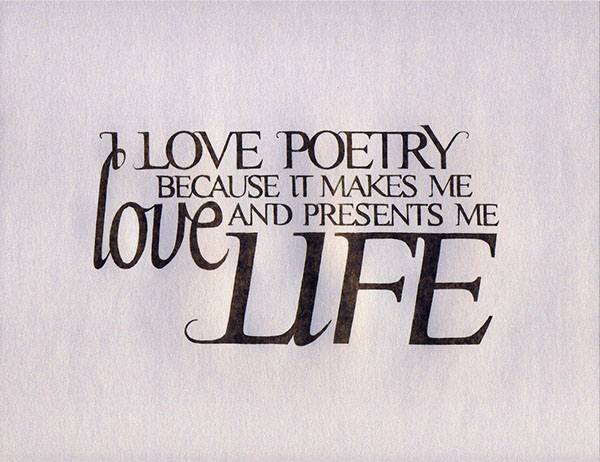 I LOVE POETRY
BECAUSE IT MAKES ME
love AND PRESENTS ME
LIFE